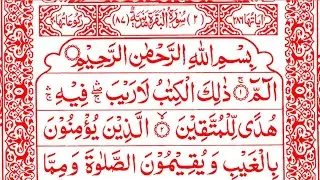 اٰیَاتُهَا ٢٨٦ (٢) سُوْرَةُ الْبَقَرَةِ مَدَنِیَّةٌ (٨٧) رُكُوْعَاتُهَا
بِسْمِ اللّٰهِ الرَّحْمٰنِ الرَّحِیْمِ
الٓمّٓ ۚ﴿١﴾ ذٰلِكَ الْكِتٰبُ لَا رَیْبَ ۛۖ فِیْهِ ۛۚ
هُدًی لِّلْمُتَّقِیْنَ ۙ﴿٢﴾ الَّذِیْنَ یُؤْمِنُوْنَ
بِالْغَیْبِ وَ یُقِیْمُوْنَ الصَّلٰوةَ وَ مِمَّا